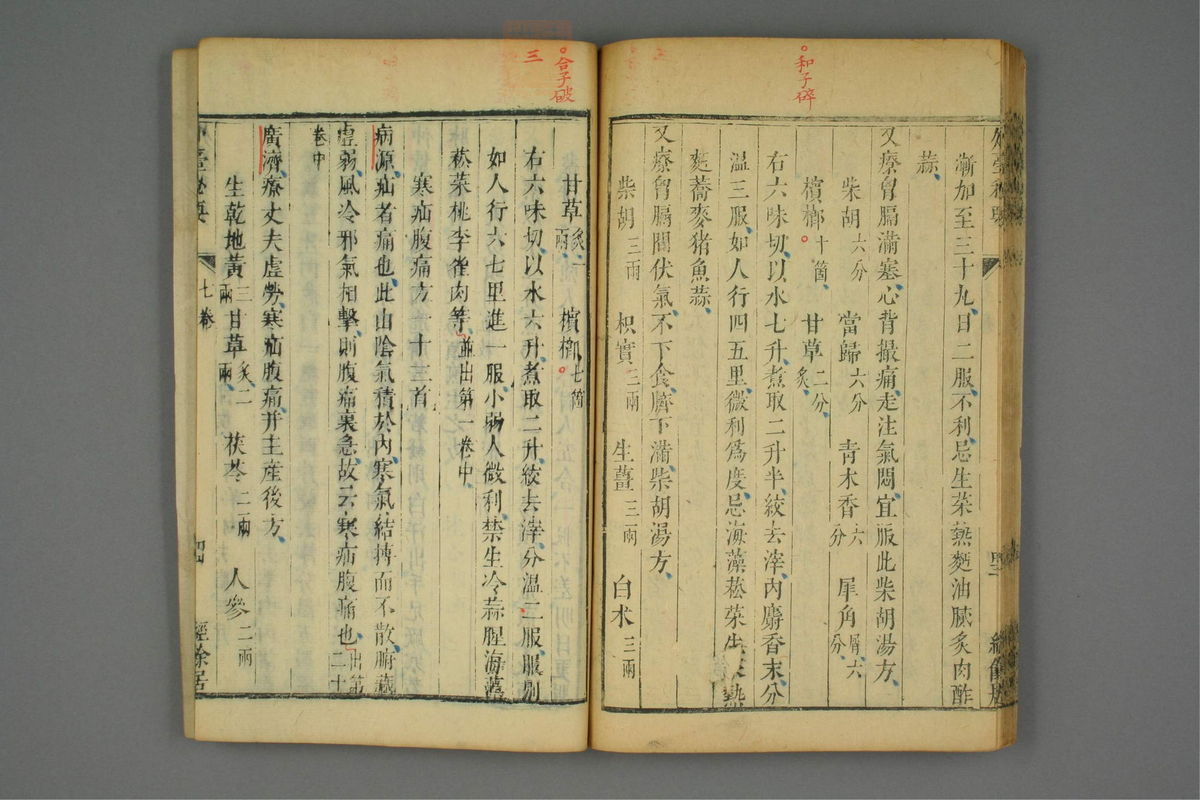 和子碎
漸加至三十丸日二服不利忌生菜熱麪油膩炙肉酢
蒜
又療胷膈滿塞心背撮痛走注氣悶宜服此柴胡湯方
柴胡六分 當歸六分 青木香六分 犀角屑六分
檳榔十箇 甘草二分炙
右六味切以水七升煮取二升半絞去滓内麝香末分
温三服如人行四五里微利爲度忌海藻菘菜生 熱
麪蕎麥猪魚蒜
又療胷膈間伏氣不下食臍下滿柴胡湯方
柴胡三兩 枳實三兩 生薑三兩 白朮三兩
合子破
三
甘草炙一兩 檳榔七箇
右六味切以水六升煮取二升絞去滓分温二服服別
如人行六七里進一服小弱人微利禁生冷蒜腥海藻
菘菜桃李雀肉等並出第一卷中
寒疝腹痛方一十三首
病源疝者痛也此由陰氣積於内寒氣結搏而不散腑臟
虛弱風冷邪氣相擊則腹痛裏急故云寒疝腹痛也出第二十
卷中
廣濟療丈夫虛勞寒疝腹痛并主産後方
生乾地黄三兩 甘草炙二兩 茯苓二兩 人參二兩
七卷
經餘居